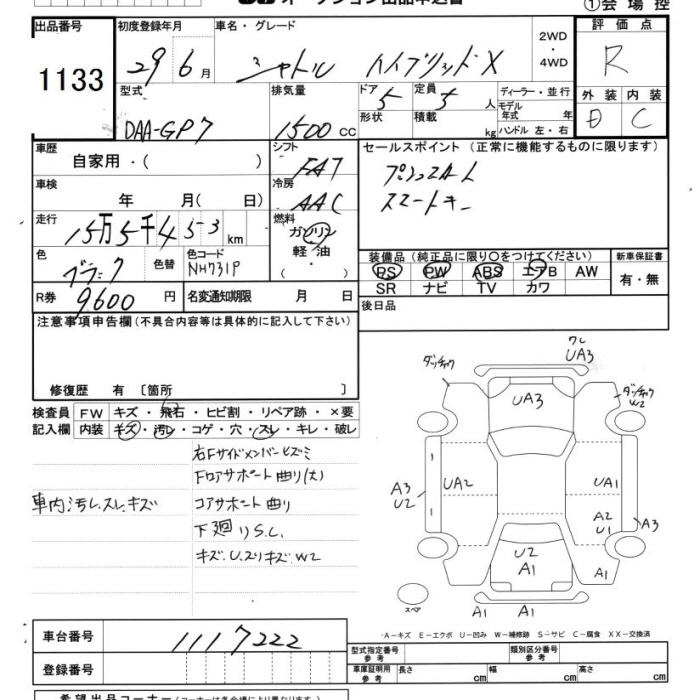 オークション出品申込書
①会場控
出品番号
1133
初度登録年月
29 6月
車名・グレード
シャトル ハイブリッドX
2WD
・
4WD
評価点
R
型式
DAA-GP7
排気量
1500 CC
ドア
5
定員
5 人
形状
積載
kg
ディーラー・並行
モデル年式 年
ハンドル 左・右
外装
D
内装
C
車歴
自家用・( )
シフト
FAT
冷房
AAC
車検
年 月( 日)
走行
15万5千453km
燃料
ガソリン
軽油
・
( )
色
ブラック
色替
色コード
NH731P
R券
9600円
名変通知期限 月 日
セールスポイント(正常に機能するものに限ります)
プッシュスタート
スマートキー
装備品(純正品に限り〇をつけてください)
PS PW ABS エアB AW
SR ナビ TV カワ
新車保証書
有・無
後日品
注意事項申告欄(不具合内容等は具体的に記入して下さい)
修復歴 有 [箇所 ]
検査員記入欄
FW キズ・飛石・ヒビ割・リペア跡・×要
内装 キズ・汚レ・コゲ・穴・スレ・キレ・破レ
車内汚レ.スレ.キズ
右Fサイドメンバーヒズミ
Fロアサポート曲り(大)
コアサポート曲り
下廻りS.C.
キズ.U.スリキズW2
ダッチャク
ワレ
UA3
ダッチャク
W2
UA3
A3
U2
UA2
UA1
A2
U1
A3
U2
A1
A1
A1
A1
スペア
A-キズ E-エクボ U-凹み W-補修跡 S-サビ C-腐食 XX-交換済
車台番号
1117222
登録番号
型式指定番号
参考
類別区分番号
参考
車庫証明用
参考
長さ cm
幅 cm
高さ cm
希望出品コーナー(コーナーは会場により異なります)